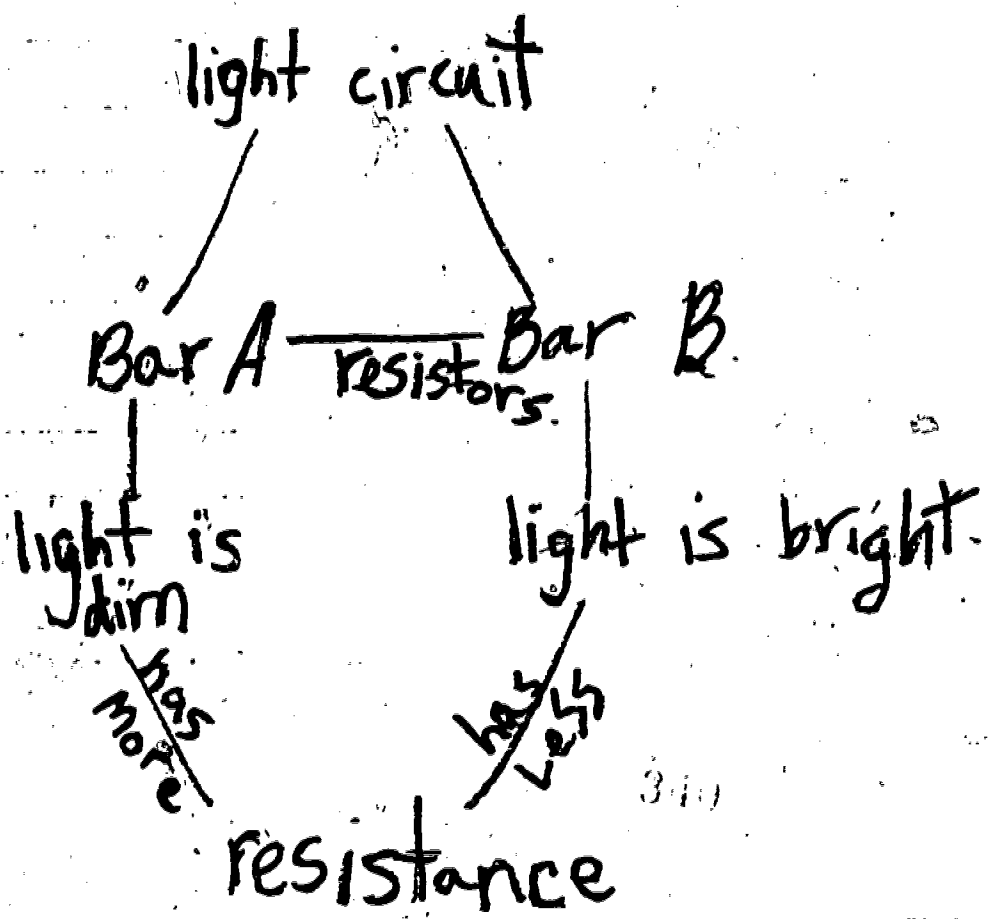 light circuit
Bar A
resistors.
Bar B
light is
dim
light is bright.
has
more
has
Less
resistance